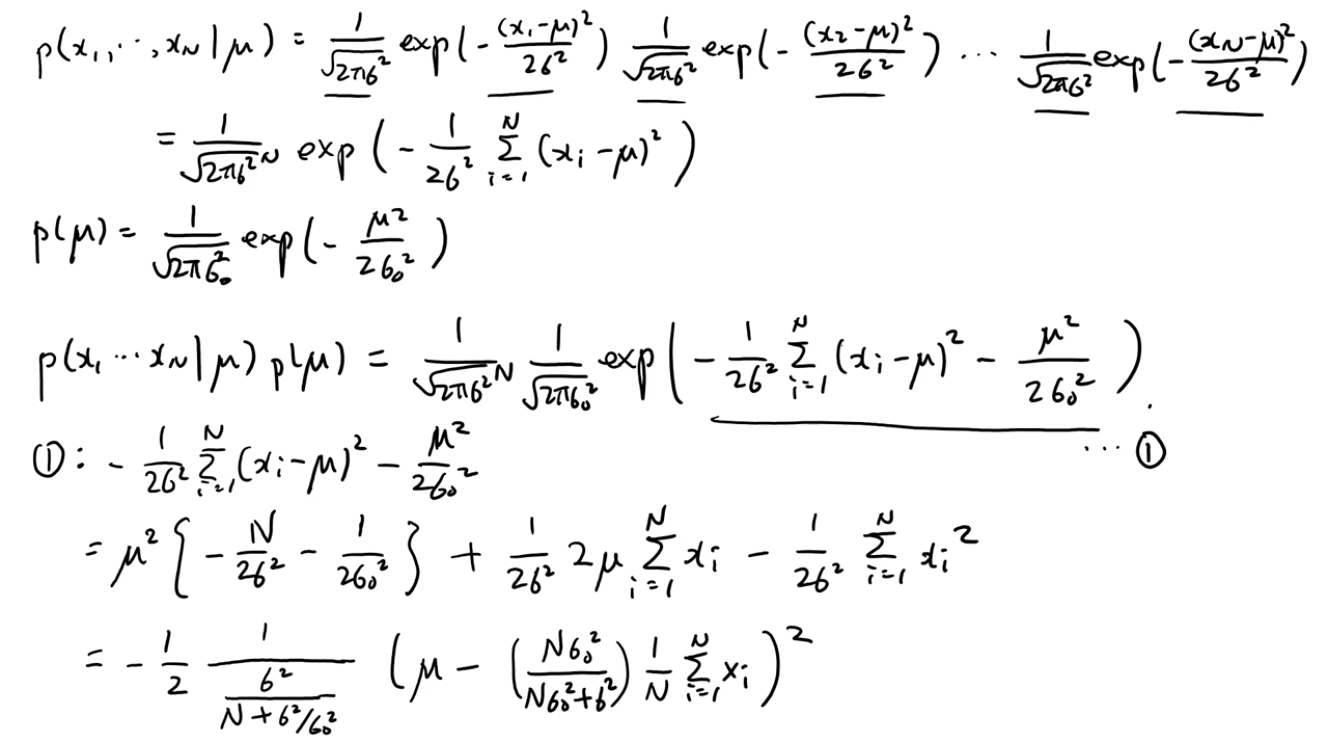 p(x₁, ⋯, x_N | μ) = \frac{1}{\sqrt{2πσ²}} exp(-\frac{(x₁-μ)²}{2σ²}) \frac{1}{\sqrt{2πσ²}} exp(-\frac{(x₂-μ)²}{2σ²}) ⋯ \frac{1}{\sqrt{2πσ²}} exp(-\frac{(x_N-μ)²}{2σ²})
= \frac{1}{\sqrt{2πσ²}^N} exp(-\frac{1}{2σ²} \sum_{i=1}^{N} (x_i-μ)²)
p(μ) = \frac{1}{\sqrt{2πσ₀²}} exp(-\frac{μ²}{2σ₀²})
p(x₁ ⋯ x_N | μ) p(μ) = \frac{1}{\sqrt{2πσ²}^N} \frac{1}{\sqrt{2πσ₀²}} exp(-\frac{1}{2σ²} \sum_{i=1}^{N} (x_i-μ)² - \frac{μ²}{2σ₀²}).
⋯ ①
①: -\frac{1}{2σ²} \sum_{i=1}^{N} (x_i-μ)² - \frac{μ²}{2σ₀²}
= μ² \{-\frac{N}{2σ²} - \frac{1}{2σ₀²}\} + \frac{1}{2σ²} 2μ \sum_{i=1}^{N} x_i - \frac{1}{2σ²} \sum_{i=1}^{N} x_i²
= -\frac{1}{2} \frac{1}{\frac{σ²}{N+σ²/σ₀²}} (μ - (\frac{Nσ₀²}{Nσ₀²+σ²}) \frac{1}{N} \sum_{i=1}^{N} x_i)²